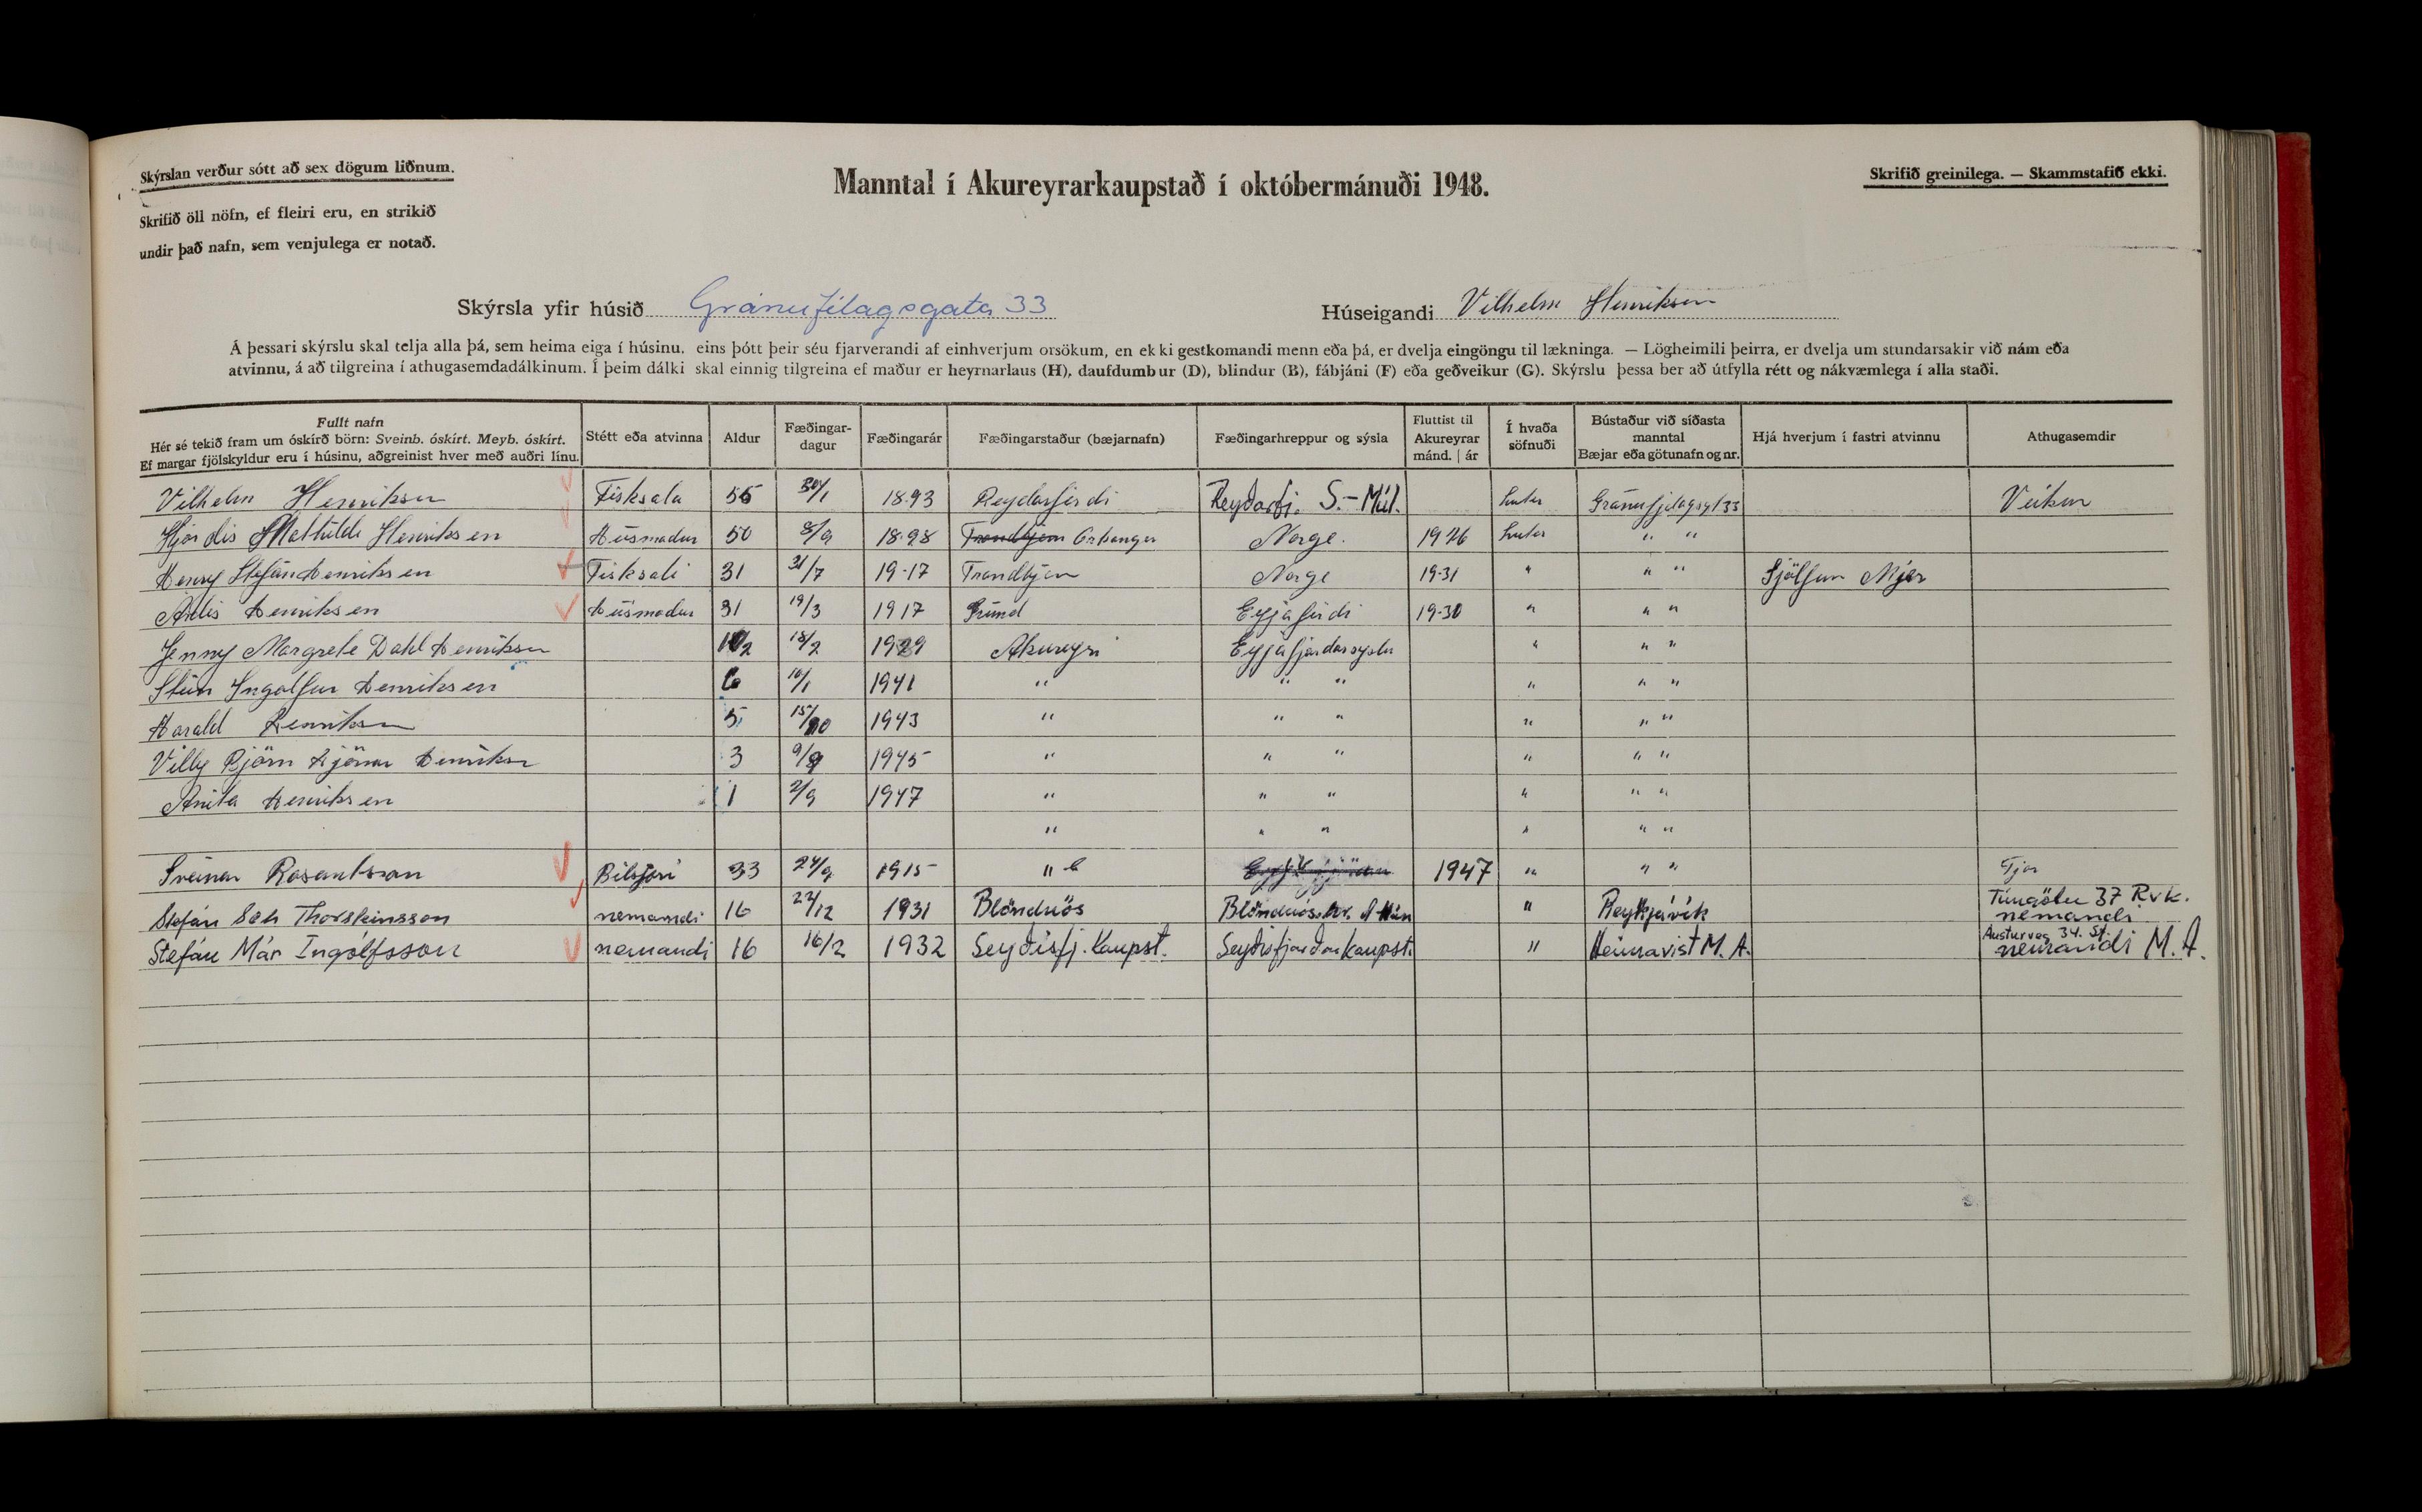 Skýrslan verður sótt að sex dögum liðnum.
Manntal í Akureyrarkaupstað í októbermánuði 1948.
Skrifið greinilega. — Skammstafið ekki.
Skrifið öll nöfn, ef fleiri eru, en strikið
undir það nafn, sem venjulega er notað.
Skýrsla yfir húsið Gránufélagsgata 33
Húseigandi Vilhelm Henriksen
Á þessari skýrslu skal telja alla þá, sem heima eiga í húsinu, eins þótt þeir séu fjarverandi af einhverjum orsökum, en ekki gestkomandi menn eða þá, er dvelja eingöngu til lækninga. — Lögheimili þeirra, er dvelja um stundarsakir við nám eða
atvinnu, á að tilgreina í athugasemdadálkinum. Í þeim dálki skal einnig tilgreina ef maður er heyrnarlaus (H), daufdumbur (D), blindur (B), fábjáni (F) eða geðveikur (G). Skýrslu þessa ber að útfylla rétt og nákvæmlega í alla staði.
Fullt nafn
Hér sé tekið fram um óskírð börn: Sveinb. óskírt. Meyb. óskírt.
Ef margar fjölskyldur eru í húsinu, aðgreinist hver með auðri línu.
Stétt eða atvinna
Aldur
Fæðingar-
dagur
Fæðingarár
Fæðingarstaður (bæjarnafn)
Fæðingarhreppur og sýsla
Fluttist til
Akureyrar
mánd. | ár
Í hvaða
söfnuði
Bústaður við síðasta
manntal
Bæjar eða götunafn og nr.
Hjá hverjum í fastri atvinnu
Athugasemdir
Vilhelm Henriksen Fisksala 55 30/1 18.93 Reydarfirdi Reyðarfj. S.-Múl. Luter Gránufjelagsgt 33 Veikur
Hjördis Mathilde Henriksen Húsmadur 50 8/9 18.98 Trondhjem Orkanger Norge. 1926 Luter " "
Henry Stefán Henriksen Fisksali 31 31/7 19-17 Trondhjem Norge 19-31 " " " Sjálfum Mjer
Henriksen Húsmadur 31 19/3 1917 Grund Eyjafirdi 19-30 " " "
Jenny Margrete Dahl Henriksen 18/2 1939 Akureyri Eyjafjardarsyslu " " "
Henriksen 6 10/1 1941 " " " " " "
Harald Henriksen 5 15/10 1943 " " " " " "
Villy Björn Henriksen 3 9/9 1945 " " " " " "
Anita Henriksen 1 2/9 1947 " " " " " "
" " " " " "
Rosantsson Bilstjóri 33 24/9 1915 " 1947 " " "
Stefán Thorsteinsson nemandi 16 1931 Blönduós Blönduóshr. A-Hún " Reykjavík Túngötu 37 Rvk.
nemandi
Stefán Már Ingólfsson nemandi 16 16/2 1932 Seyðisfj. Kaupst. Seyðisfjarðarkaupst. " Heimavist M. A. Austurveg 34. Sf.
nemandi M. A.